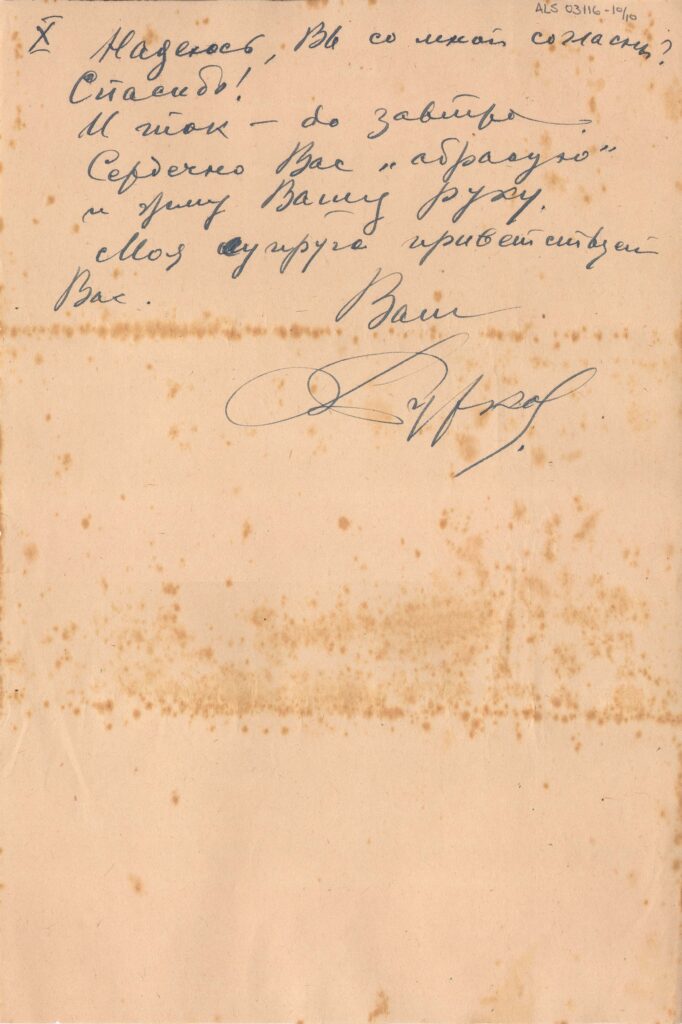 ALS 03116-10/10
X Надеюсь, Вы со мной согласны?
Спасибо!
И так – до завтра.
Сердечно Вас „абрасую“
и жму Вашу руку.
Моя супруга приветствует
Вас.
Ваш